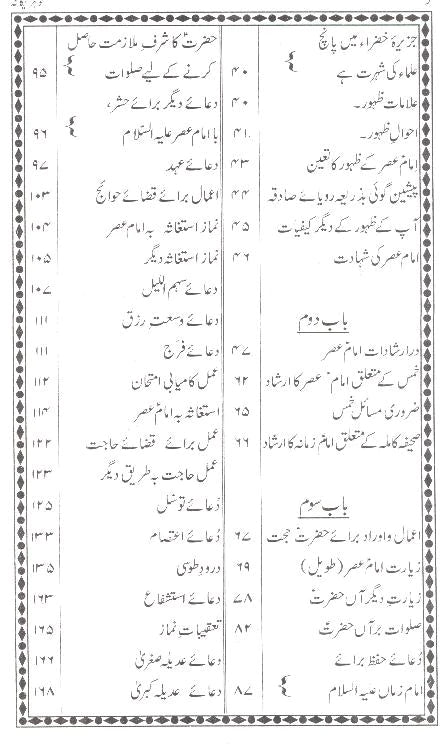 جزیرۂ خضراء میں پانچ
علماء کی شہرت ہے ۴۰
علامات ظہور۔ ۴۰
احوالِ ظہور۔ ۴۱
امام عصر کے ظہور کا تعین ۴۳
پیشین گوئی بذریعہ رویائے صادقہ ۴۴
آپ کے ظہور کے دیگر کیفیات ۴۵
امام عصر کی شہادت ۴۶
باب دوم
در ارشادات امام عصر ۴۷
خمس کے متعلق امام عصر کا ارشاد ۶۲
ضروری مسائل خمس ۶۵
صحیفہ کاملہ کے متعلق امام زمانہ کا ارشاد ۶۶
باب سوم
اعمال و اوراد برائے حضرت حجت ۶۷
زیارت امام عصر (طویل) ۶۹
زیارتِ دیگر آں حضرتؑ ۷۸
صلوات برآں حضرتؑ ۸۲
دُعائے حفظ برائے
امام زماں علیہ السلام ۸۷
حضرتؑ کا شرفِ ملازمت حاصل
کرنے کے لیے صلوات ۹۵
دعائے دیگر برائے حشر،
با امام عصر علیہ السّلام ۹۶
دعائے عہد ۹۷
اعمال برائے قضائے حوائج ۱۰۳
نماز استغاثہ بہ امام عصر ۱۰۴
نماز استغاثہ دیگر ۱۰۵
دعائے سہم اللیل ۱۰۷
دعائے وسعتِ رزق ۱۱۱
دعائے فرج ۱۱۱
عمل کامیابی امتحان ۱۱۲
استغاثہ بہ امام عصر ۱۱۴
عمل برائے قضائے حاجت ۱۲۲
عمل حاجت بہ طریق دیگر ۱۲۳
دُعائے توسّل ۱۲۵
دُعائے اعتصام ۱۳۳
درودِ طوسی ۱۳۵
دعائے استشفاع ۱۶۳
تعقیباتِ نماز ۱۶۵
دعائے عدیلہ صغریٰ ۱۶۶
دعائے عدیلہ کبریٰ ۱۶۸